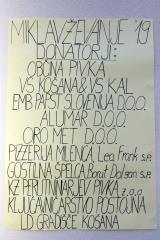 MIKLAVŽEVANJE '19
DONATORJI:
OBČINA PIVKA
VS KOŠANA & VS KAL
EMB PAPST SLOVENIJA D.O.O.
ALUMAR D.O.O.
ORO MET D.O.O.
PIZZERIJA MLENCA, Lea Frank s.p.
GOSTILNA ŠPELCA Borut Dolgan s.p.
KZ PERUTNINARJEV PIVKA z.o.o
KLJUČAVNIČARSTVO POSTOJNA
LD GRADIŠČE KOŠANA